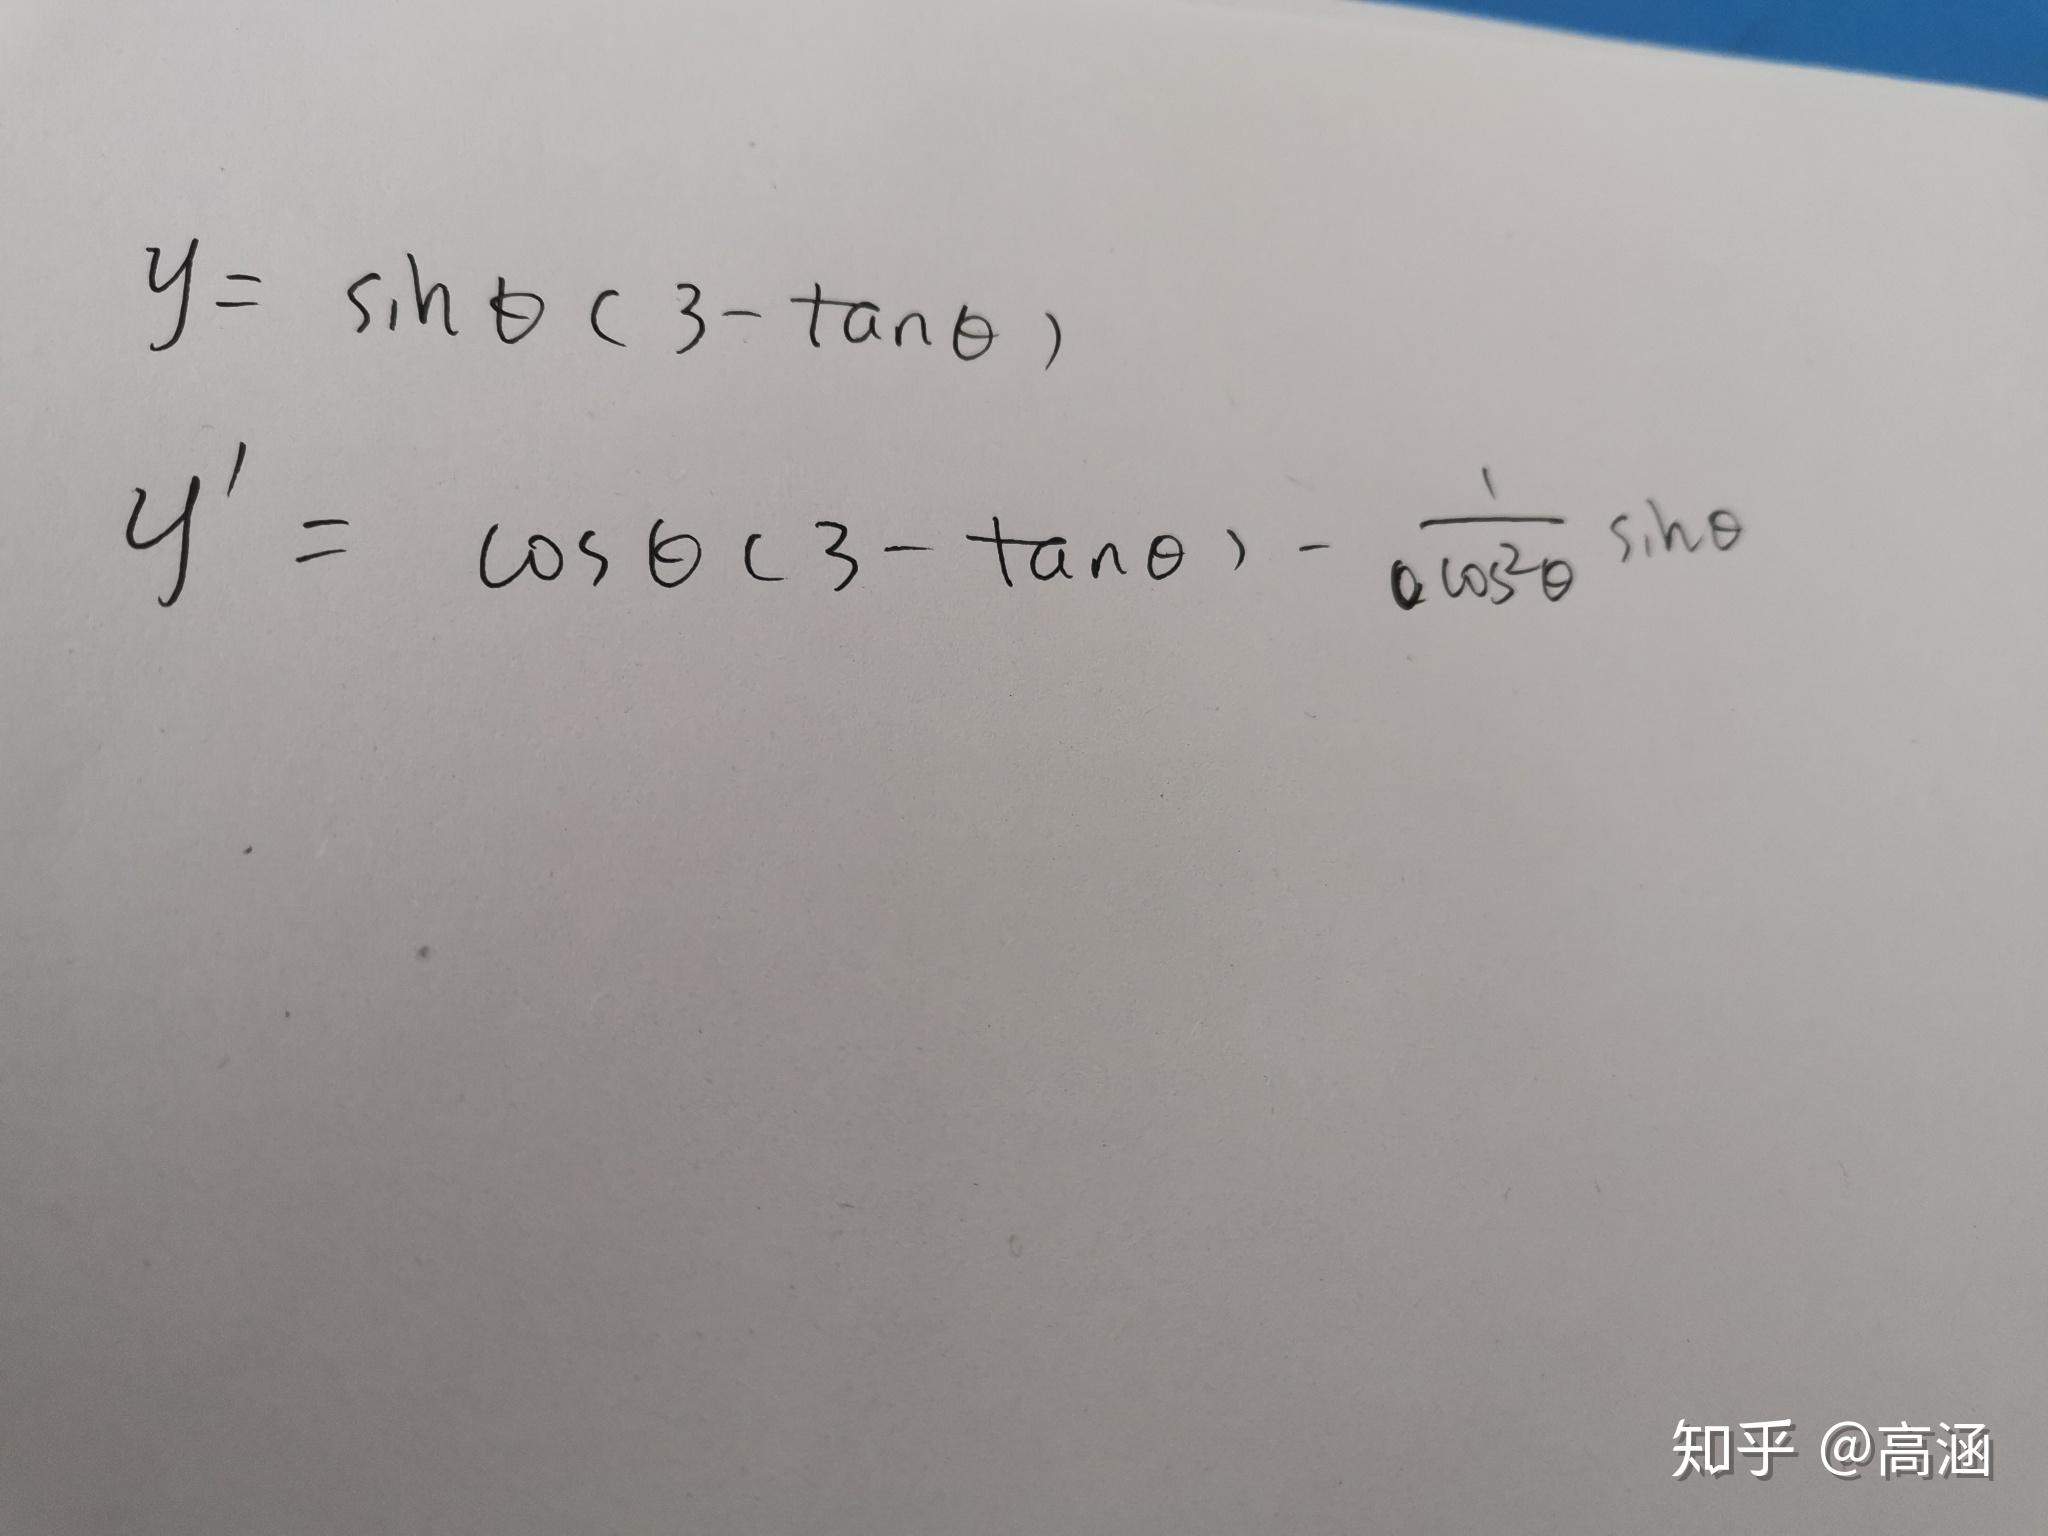 y = sinθ(3-tanθ)
y' = cosθ(3-tanθ) - 1/cos²θ sinθ
知乎 @高涵